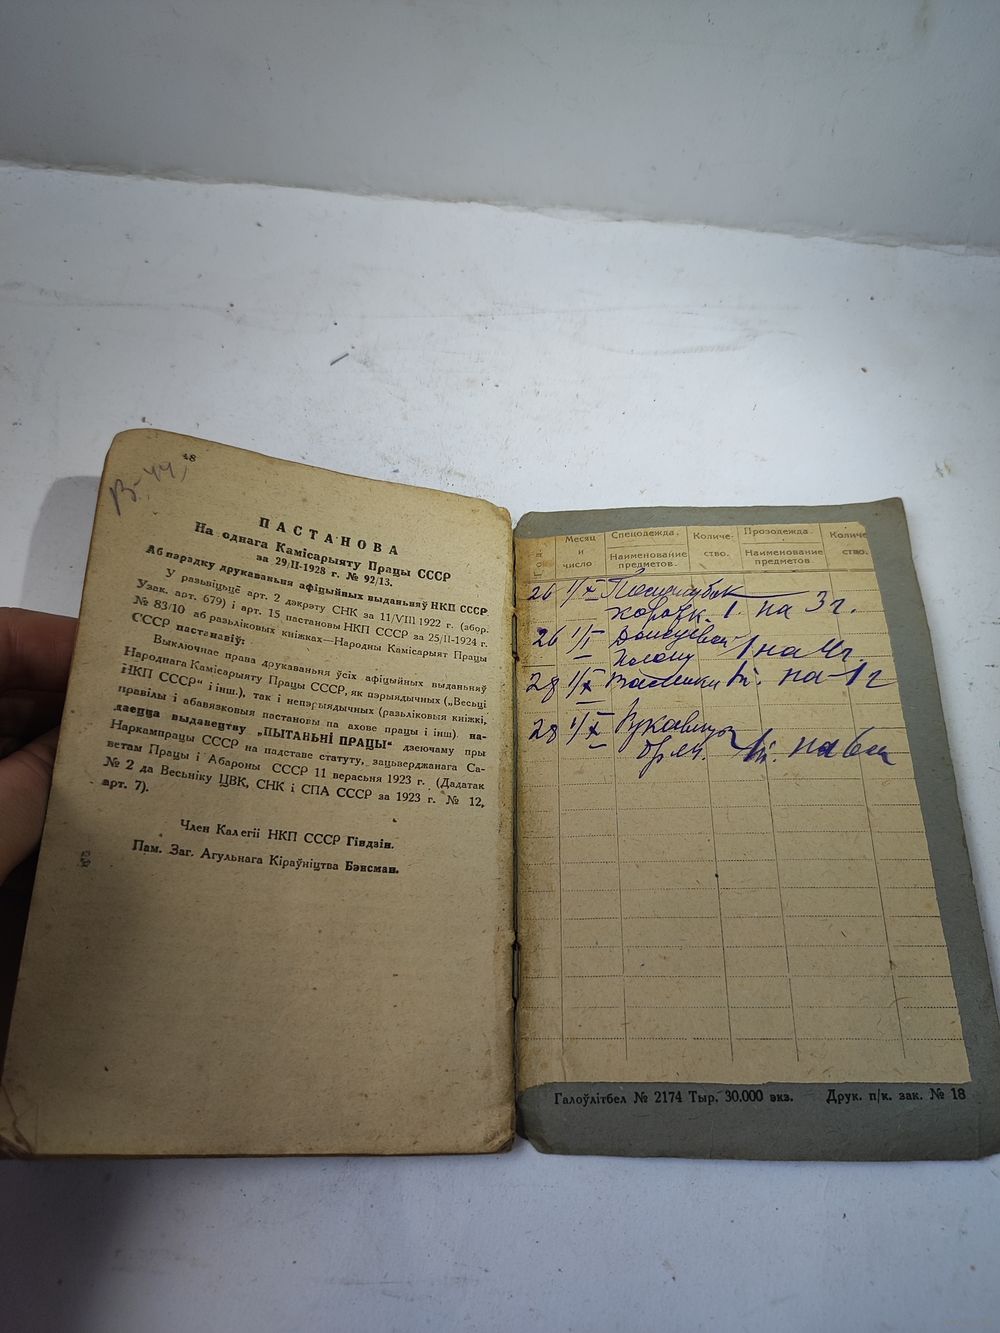 48
В-441
ПАСТАНОВА
На однага Камісарыяту Працы СССР
за 29/II-1928 г. № 92/13.
Аб парадку друкаваньня афіцыйных выданьняў НКП СССР
У разьвіцьцё арт. 2 дэкрэту СНК за 11/VIII 1922 г. (збор.
Узак. арт. 679) і арт. 15 пастановы НКП СССР за 25/II-1924 г.
№ 83/10 аб разьліковых кніжках—Народны Камісарыят Працы
СССР пастанавіў:
Выключнае права друкаваньня ўсіх афіцыйных выданьняў
Народнага Камісарыяту Працы СССР, як пэрыядычных („Весьці
НКП СССР" і інш.), так і непэрыядычных (разьліковыя кніжкі,
правілы і абавязковыя пастановы па ахове працы і інш). на-
даецца выдавецтву „ПЫТАНЬНІ ПРАЦЫ" дзеючаму пры
Наркампрацы СССР на падставе статуту, зацьверджанага Са-
ветам Працы і Абароны СССР 11 верасьня 1923 г. (Дадатак
№ 2 да Весьніку ЦВК, СНК і СПА СССР за 1923 г. № 12,
арт. 7).
Член Калегіі НКП СССР Гіндзін.
Пам. Заг. Агульнага Кіраўніцтва Бэнсман.
Месяц и число
Спецодежда. Наименование предметов.
Количе- ство.
Прозодежда. Наименование предметов
Количе ство.
26 1/X Полушубок
1 на 3 г.
26 1/X
1 на 4г
28 1/X Валенки 1 п. на 1 г
28 1/X Рукавицы
бр.
1 п. на 6
Галоўлітбел № 2174 Тыр. 30.000 экз. Друк. п/к. зак. № 18